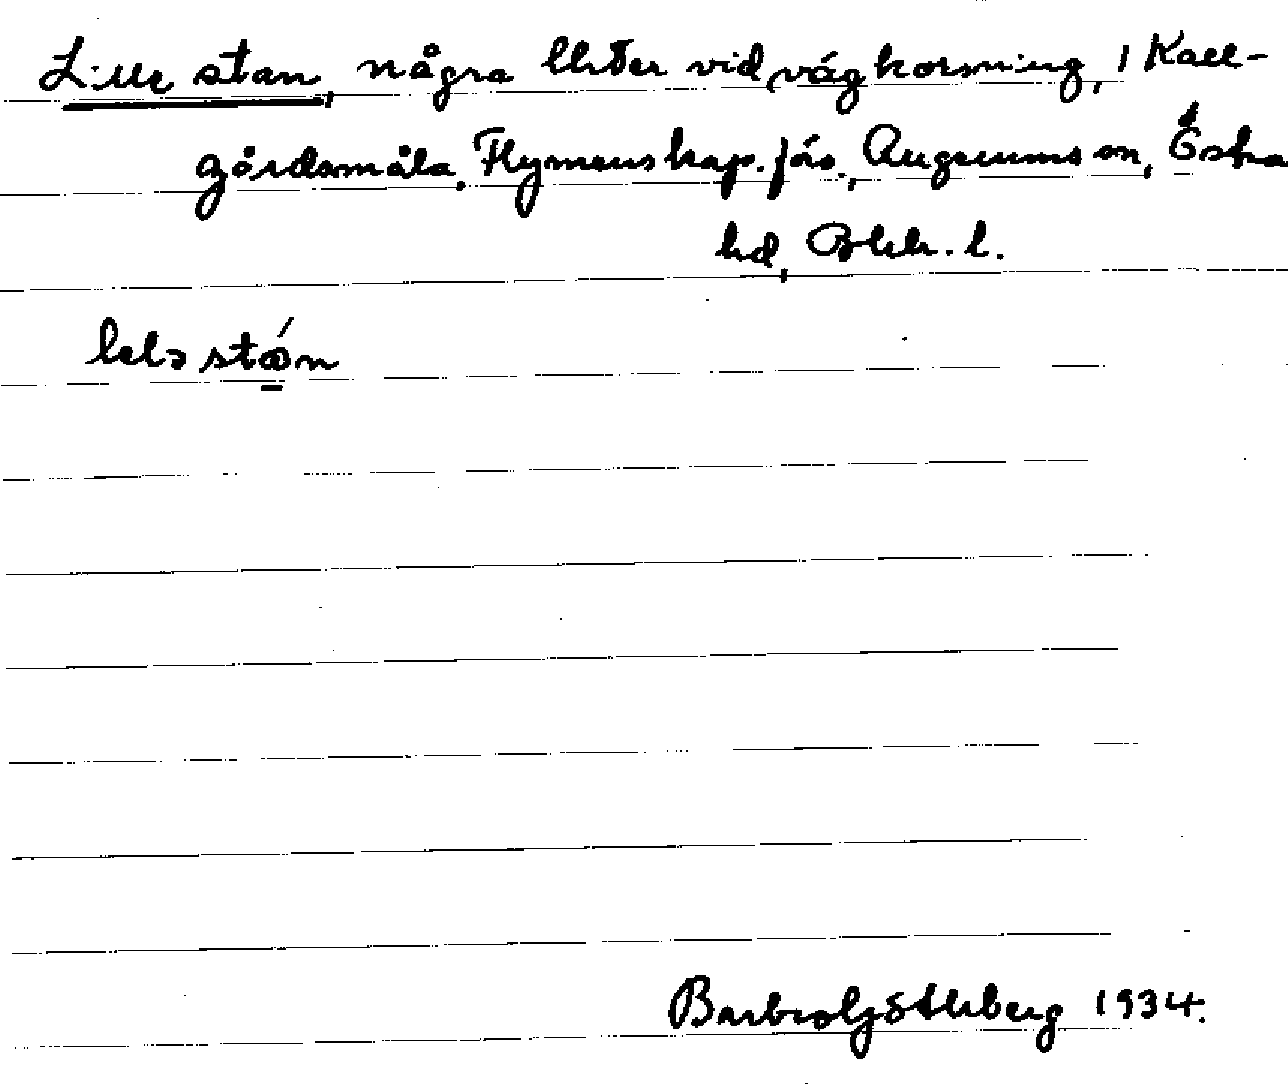 Lille stan, några lhter vid vägkorsning, i Kall-
gårdsmåla, Flymens kap. förs., Augerums sn, Östra
hd, Blek. l.
lelə stán
Barbro Göthberg 1934.